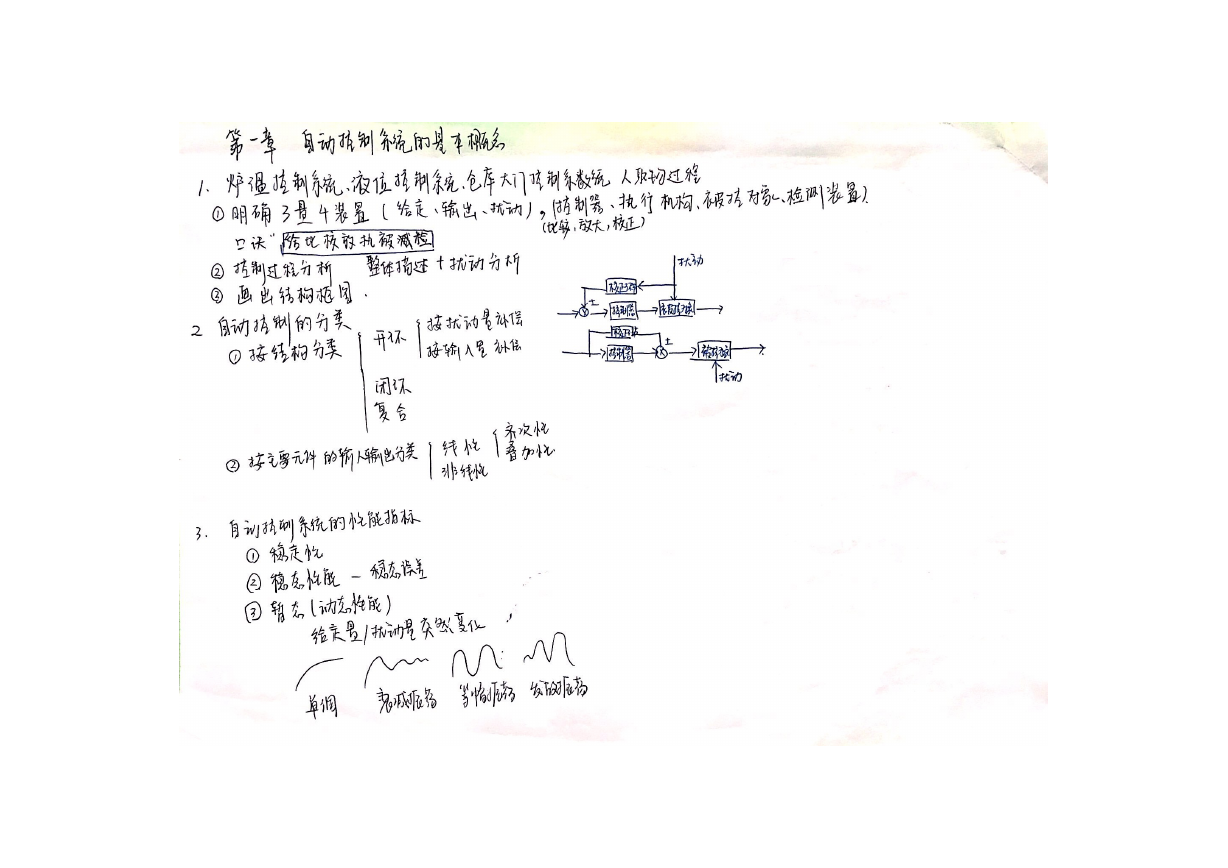 第一章 自动控制系统的基本概念
1. 炉温控制系统、液位控制系统、仓库大门控制系统 人取物过程
① 明确3量4装置(给定、输出、扰动),(控制器、执行机构、被控对象、检测装置)
(比较,放大,校正)
口诀"给比校放执被减检
② 控制过程分析 整体描述+扰动分析
③ 画出结构框图.
扰动
±
控制器
2 自动控制的分类
① 按结构分类
开环
按扰动量补偿
按输入量补偿
±
控制器
扰动
闭环
复合
② 按主要元件的输入输出分类
线性
齐次性
叠加性
非线性
3. 自动控制系统的性能指标
① 稳定性
② 稳态性能 - 稳态误差
③ 暂态(动态性能)
给定量/扰动量突然变化
单调 衰减振荡 等幅振荡 发散振荡